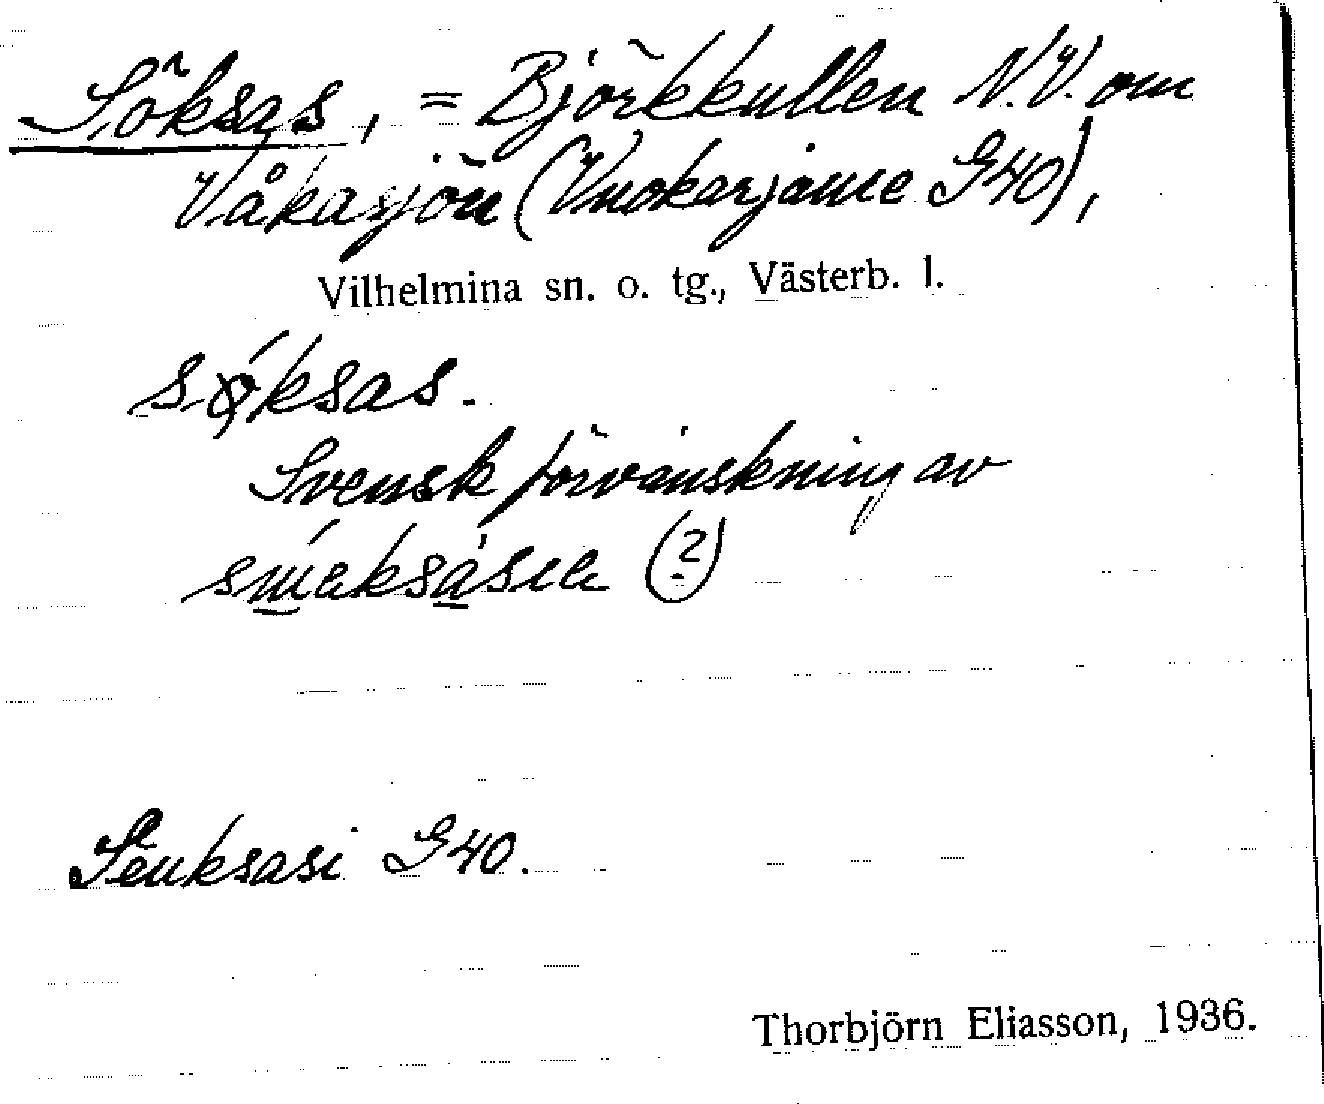 Söksas, = Björkkullen N.V. om
Våkasjön (Vuokarjaure G40),
Vilhelmina sn. o. tg., Västerb. l.
söksas.
Svensk förvanskning av
(?)
Seuksasi G40.
Thorbjörn Eliasson, 1936.